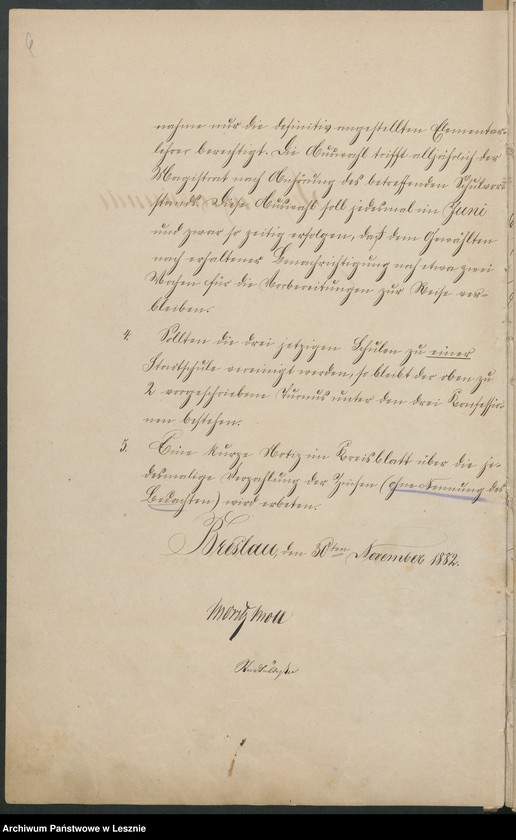 nahme nur die definitiv angestellten Elementar-
lehrer berechtigt. Die Auswahl trifft alljährlich der
Magistrat nach Anhörung des betreffenden Schulvor-
stands. Diese Auswahl soll jedesmal im Juni
und zwar so zeitig erfolgen, daß dem Gewählten
nach erhaltener Benachrichtigung noch etwa zwei
Wochen für die Vorbereitungen zur Reise ver-
bleiben.
4. Sollten die drei jetzigen Schulen zu einer
Stadtschule vereinigt werden, so bleibt der oben zu
2 vorgeschriebene Turnus unter den drei Konfessio-
nen bestehen.
5. Eine kurze Notiz im Kreisblatt über die je-
desmalige Verzahlung der Zinsen (ohne Nennung des
Bedachten) wird erbeten.
Breslau, den 30ten November 1882.
Moritz Moll
Archiwum Państwowe w Lesznie